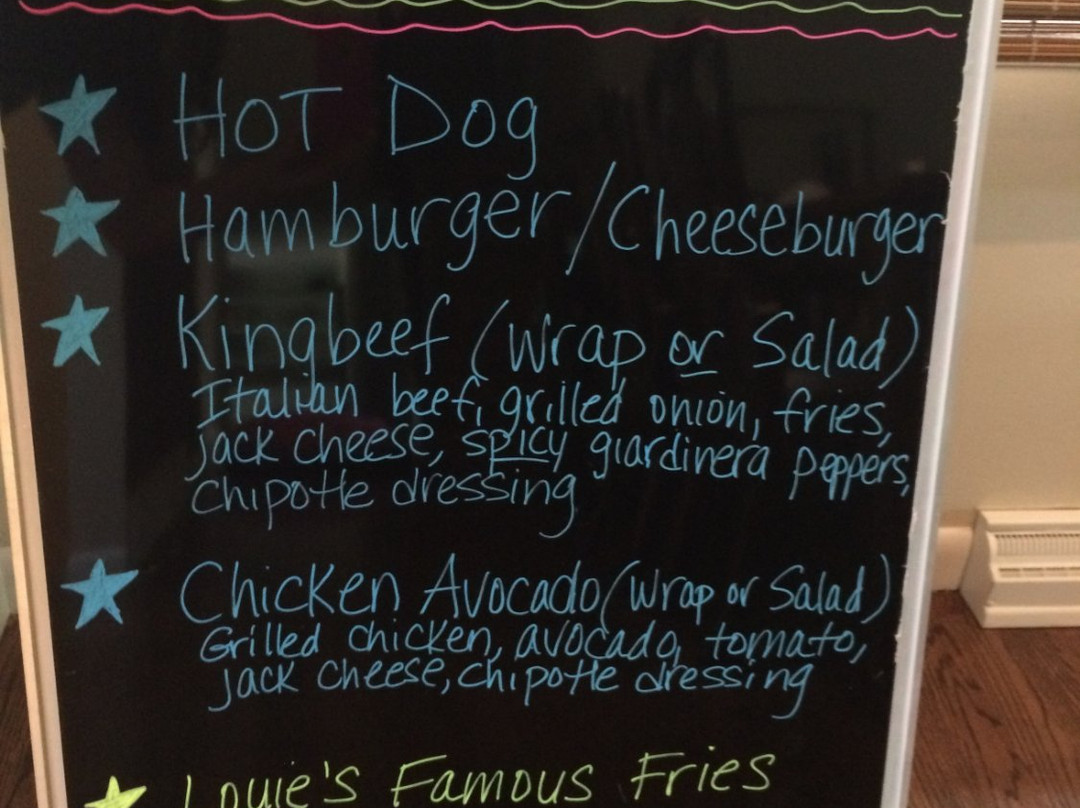 HOT Dog
Hamburger/Cheeseburger
Kingbeef (Wrap or Salad)
Italian beef, grilled onion, fries,
jack cheese, spicy giardinera peppers,
chipotle dressing
Chicken Avocado (Wrap or Salad)
Grilled chicken, avocado, tomato,
jack cheese, chipotle dressing
Louie's Famous Fries